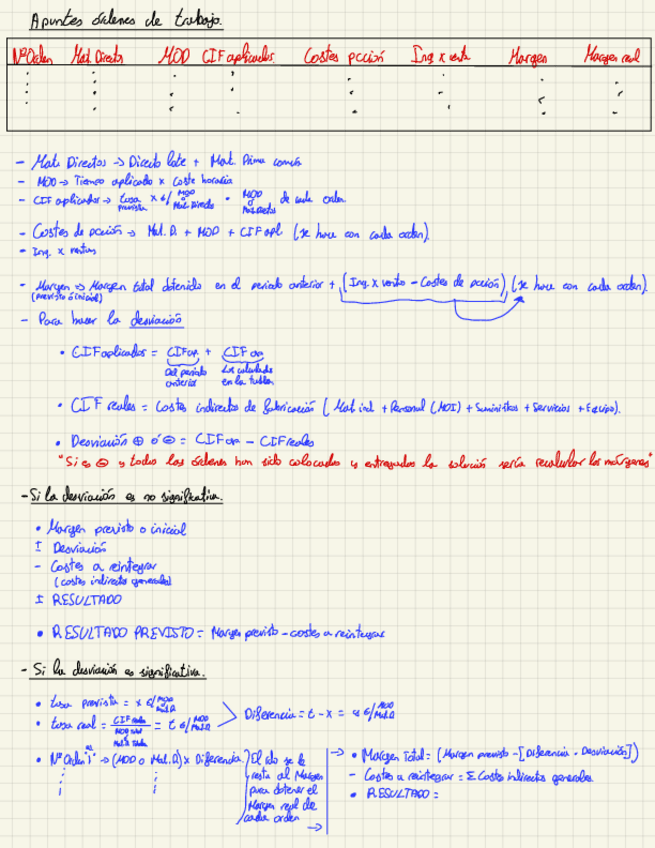 Apuntes órdenes de trabajo.
NºOrden Mat. Directos MOD CIF aplicados Costes pcción Ing x venta Margen Margen real
- Mat. Directos → Directo lote + Mat. Prima común
- MOD → Tiempo aplicado x Coste horario
- CIF aplicados → tasa prevista x €/ MOD o Mat. Directo · MOD o Mat. Directos de cada orden
- Costes de pcción → Mat. D. + MOD + CIF apl (se hace con cada orden).
- Ing. x ventas
- Margen → Margen total obtenido en el periodo anterior + (Ing. x venta - Costes de pcción) (se hace con cada orden).
(previsto ó inicial)
- Para hacer la desviación
• CIF aplicados = CIF ap + CIF ap
Del periodo anterior Los calculados en la tabla
• CIF reales = Costes indirectos de fabricación (Mat ind + Personal (MOI) + Suministros + Servicios + Equipo).
• Desviación ⊕ ó ⊖ = CIF ap - CIF reales
"Si es ⊖ y todos las órdenes han sido colocados y entregados la solución sería recalcular los márgenes"
- Si la desviación es no significativa.
• Margen previsto o inicial
± Desviación
- Costes a reintegrar
(costes indirectos generales)
± RESULTADO
• RESULTADO PREVISTO = Margen previsto - costes a reintegrar
- Si la desviación es significativa.
• tasa prevista = x €/ MOD o Mat.D
• tasa real = CIF reales / MOD total o Mat.D totales = t €/ MOD o Mat.D
Diferencia = t - x = €/ MOD o Mat.D
• Nº Orden "i" → (MOD o Mat. D) x Diferencia
El rdo se le resta al Margen para obtener el Margen real de cada orden
→ • Margen Total = (Margen previsto - [Diferencia · Desviación])
- Costes a reintegrar = Σ Costes indirectos generales
• RESULTADO =